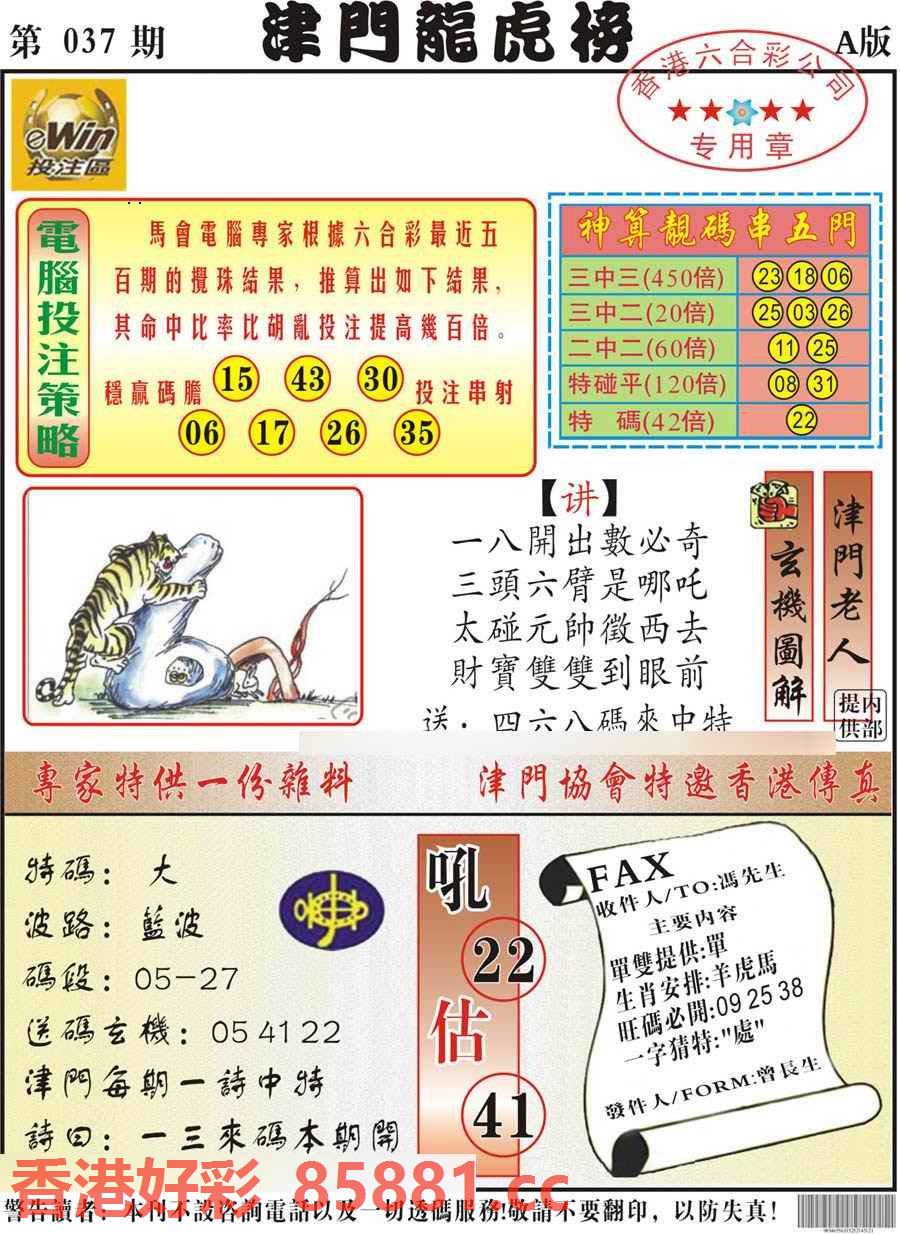 第 037 期
津門龍虎榜
A版
香港六合彩公司
专用章
eWin
投注區
電腦投注策略
馬會電腦專家根據六合彩最近五
百期的攪珠結果，推算出如下結果，
其命中比率比胡亂投注提高幾百倍。
穩贏碼膽 15 43 30 投注串射
06 17 26 35
神算靚碼串五門
三中三(450倍) 23 18 06
三中二(20倍) 25 03 26
二中二(60倍) 11 25
特碰平(120倍) 08 31
特 碼(42倍) 22
【讲】
一八開出數必奇
三頭六臂是哪吒
太碰元帥徵西去
財寶雙雙到眼前
送：四六八碼來中特
玄機圖解
津門老人
提供
内部
專家特供一份雜料
津門協會特邀香港傳真
特碼：大
波路：藍波
碼段：05-27
送碼玄機：05 41 22
津門每期一詩中特
詩曰：一三來碼本期開
吼
22
估
41
FAX
收件人/TO:馮先生
主要内容
單雙提供:單
生肖安排:羊虎馬
旺碼必開:09 25 38
一字猜特:"處"
發件人/FORM:曾長生
香港好彩 85881.cc
警告讀者：本刊不設咨詢電話以及一切透碼服務!敬請不要翻印，以防失真!